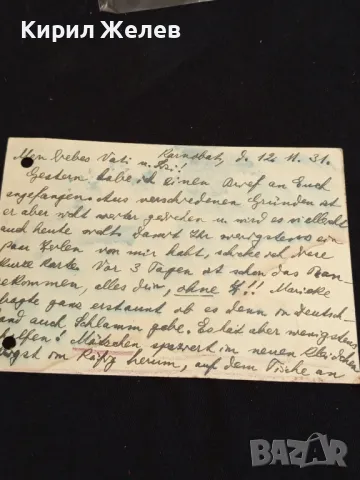 Кирил Желев
Mein liebes Vati u. Isi! Karnobat, d. 12. 11. 31.
Gestern habe ich einen Brief an Euch
angefangen. Aus verschiedenen Gründen ist
er aber nicht weiter gediehen u. wird es vielleicht
auch heute nicht. Damit Ihr wenigstens ein
paar Zeilen von mir habt, schicke ich diese
kurze Karte. Vor 3 Tagen ist schon das
gekommen, alles drin, ohne !! Marieke
fragte ganz erstaunt ob es denn in Deutsch
land auch Schlamm gäbe. Es hat aber wenigstens
geholfen! spaziert im neuen Kleidchen
längst im Käfig herum, auf dem Tische an
BAZAR